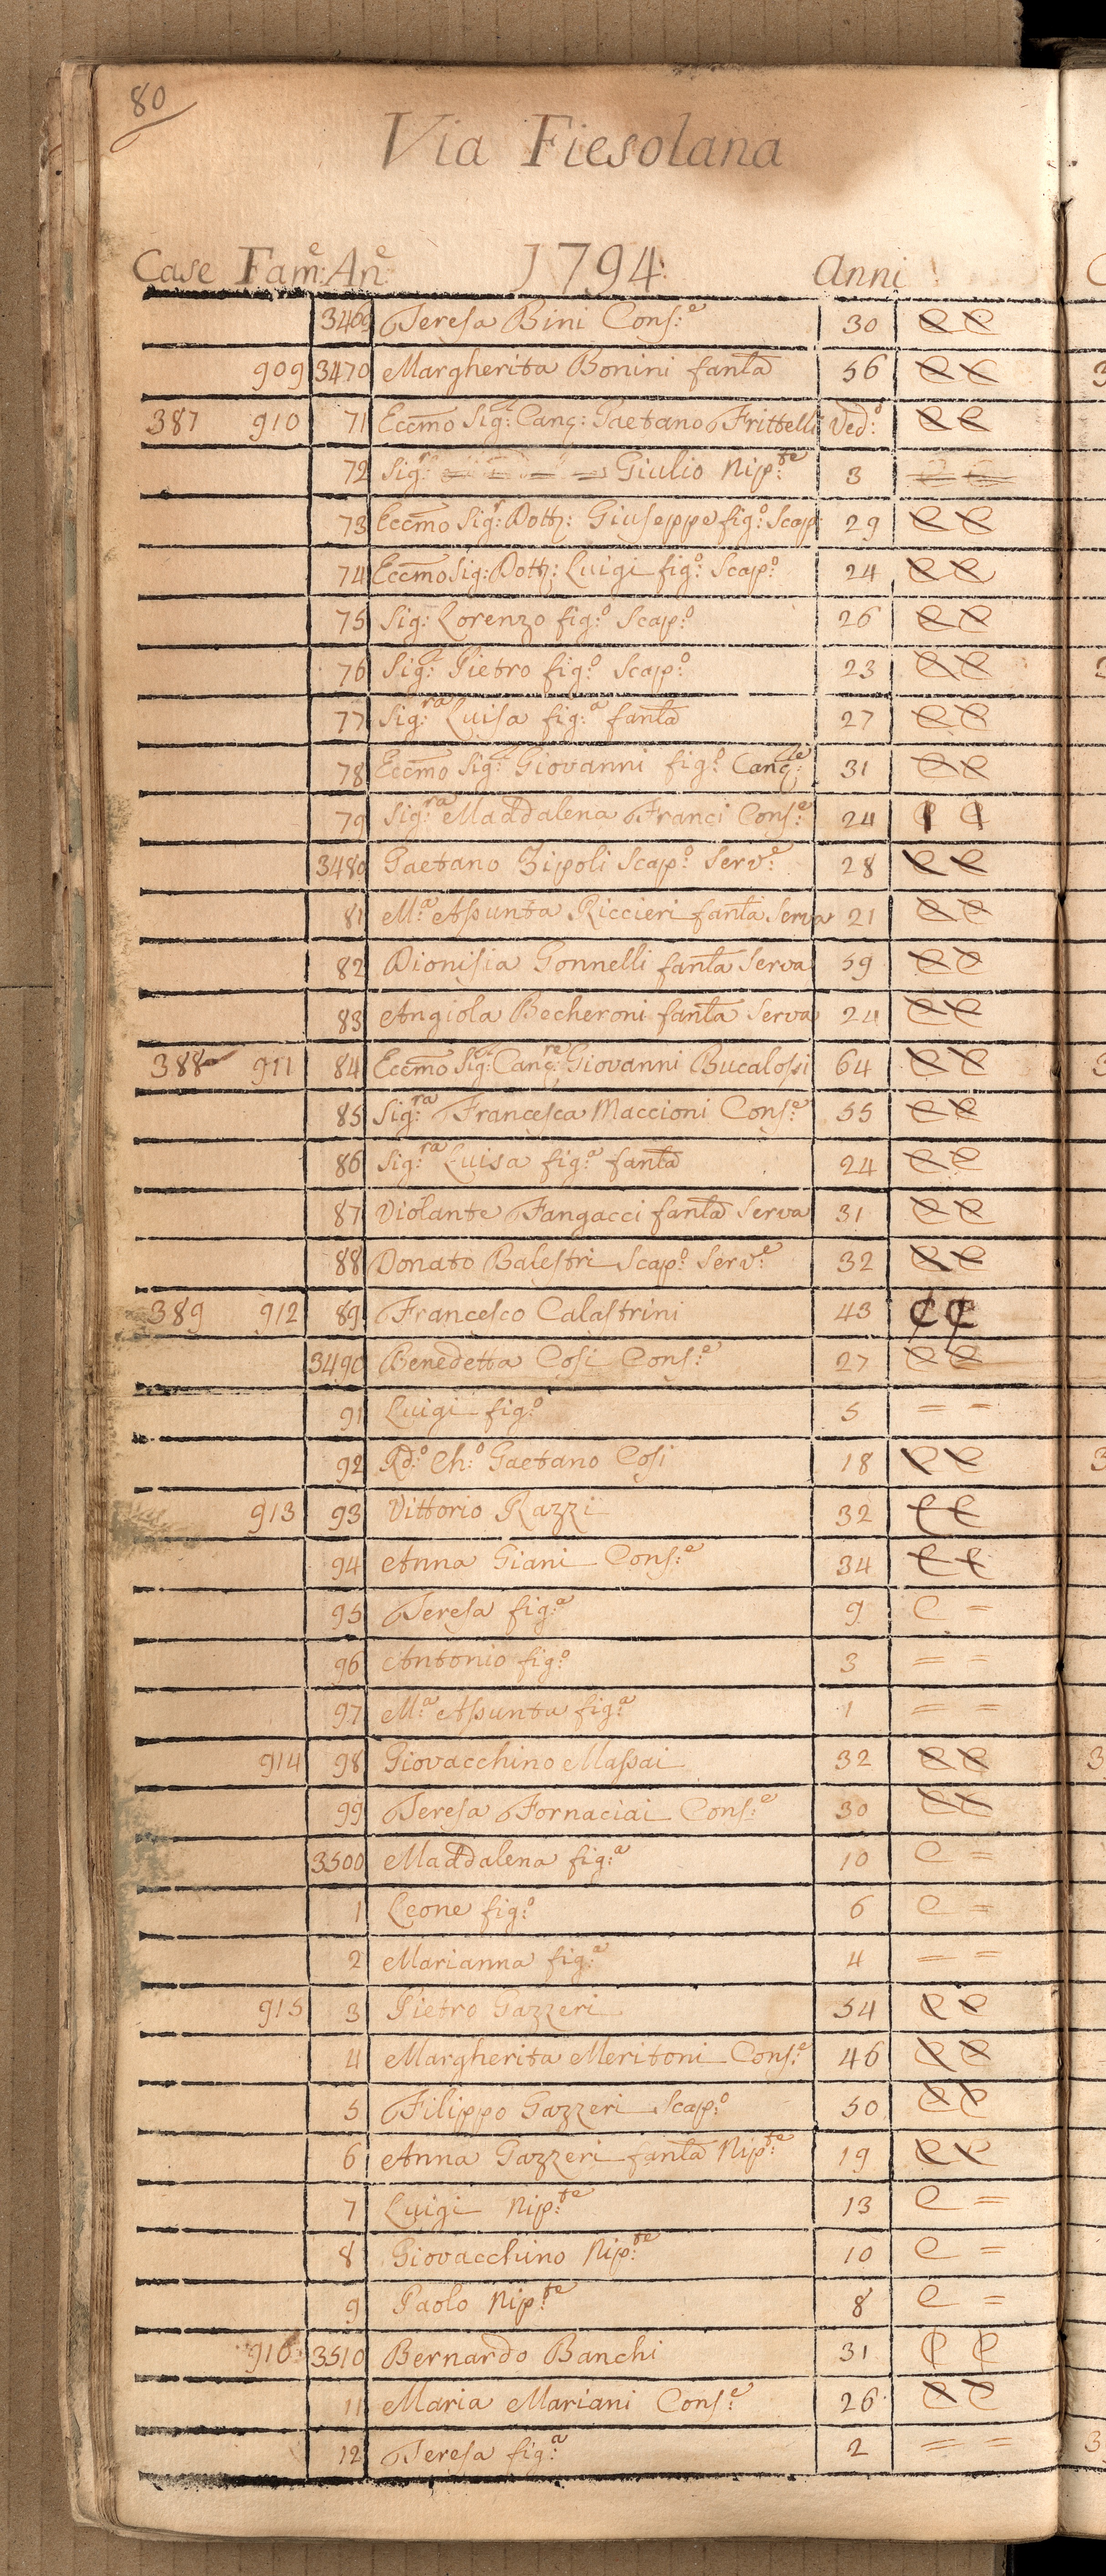 80
Via Fiesolana
Case Fam:e An:e 1794: Anni
3469 Teresa Bini Cons:e 30
909 3470 Margherita Bonini fanla 56
387 910 71 Eccmo Sig:r Canc: Gaetano Frittelli Ved:o
72 Sig:r = = = = Giulio Nip:te 3 = =
73 Eccmo Sig:r Dott: Giuseppe fig:o Scap: 29
74 Eccmo Sig: Dott: Luigi fig:o Scap:o 24
75 Sig: Lorenzo fig:o Scap:o 26
76 Sig:r Pietro fig:o Scap:o 23
77 Sig:ra Luisa fig:a fanla 27
78 Eccmo Sig:r Giovanni fig:o Canc:le 31
79 Sig:ra Maddalena Franci Cons:e 24
3480 Gaetano Zipoli Scap:o Serv:e 28
81 M:a Assunta Riccieri fanla Serva 21
82 Dionisia Gonnelli fanla Serva 59
83 Angiola Becheroni fanla Serva 24
388 911 84 Eccmo Sig:r Canc:re Giovanni Bucalossi 64
85 Sig:ra Francesca Maccioni Cons:e 55
86 Sig:ra Luisa fig:a fanla 24
87 Violante Fangacci fanla Serva 31
88 Donato Balestri Scap:o Serv:e 32
389 912 89 Francesco Calastrini 43
3490 Benedetta Cosi Cons:e 27
91 Luigi fig:o 5 = =
92 Rd:o Ch:o Gaetano Cosi 18
913 93 Vittorio Razzi 32
94 Anna Giani Cons:e 34
95 Teresa fig:a 9 C =
96 Antonio fig:o 3 = =
97 M:a Assunta fig:a 1 = =
914 98 Giovacchino Massai 32
99 Teresa Fornaciai Cons:e 30
3500 Maddalena fig:a 10 C =
1 Leone fig:o 6 C =
2 Marianna fig:a 4 = =
915 3 Pietro Gazzeri 54
4 Margherita Meritoni Cons:e 46
5 Filippo Gazzeri Scap:o 50
6 Anna Gazzeri fanla Nip:te 19
7 Luigi Nip:te 13 C =
8 Giovacchino Nip:te 10 C =
9 Paolo Nip:te 8 C =
916 3510 Bernardo Banchi 31
11 Maria Mariani Cons:e 26
12 Teresa fig:a 2 = =